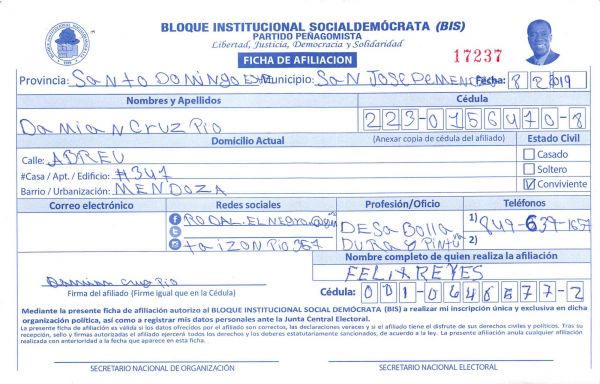 BLOQUE INSTITUCIONAL SOCIALDEMÓCRATA (BIS)
PARTIDO PEÑAGOMISTA
Libertad, Justicia, Democracia y Solidaridad
FICHA DE AFILIACION
17237
Provincia: SANTO DOMINGO ESTE Municipio: SAN JOSE DE MENDOZA Fecha: 8 2 2019
Nombres y Apellidos Cédula
DAMIAN CRUZ PIO 223-0156470-8
Domicilio Actual (Anexar copia de cédula del afiliado) Estado Civil
Calle: ABREU Casado
#Casa / Apt. / Edificio: #347 Soltero
Barrio / Urbanización: MENDOZA Conviviente
Correo electrónico Redes sociales Profesión/Oficio Teléfonos
RODAL.ELNEGRO DESABOLLA 1) 849-639-1657
taizonpio357 DURA y PINTU 2)
Nombre completo de quien realiza la afiliación
FELIX REYES
Damian Cruz Pio
Firma del afiliado (Firme igual que en la Cédula) Cédula: 001-0646577-2
Mediante la presente ficha de afiliación autorizo al BLOQUE INSTITUCIONAL SOCIAL DEMÓCRATA (BIS) a realizar mi inscripción única y exclusiva en dicha
organización política, así como a registrar mis datos personales ante la Junta Central Electoral.
La presente ficha de afiliación es válida si los datos ofrecidos por el afiliado son correctos, las declaraciones veraces y si el afiliado tiene el disfrute de sus derechos civiles y políticos. Tras su
recepción, sello y firmas autorizadas el afiliado ejercerá todos los derechos y los deberes estatutariamente sancionados, de acuerdo a la ley. La presente afiliación anula cualquier afiliación
realizada con anterioridad a la fecha que aparece en esta ficha.
SECRETARIO NACIONAL DE ORGANIZACIÓN SECRETARIO NACIONAL ELECTORAL